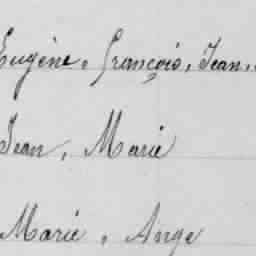 Eugène, François, Jean,
Jean, Marie
Marie, Ange